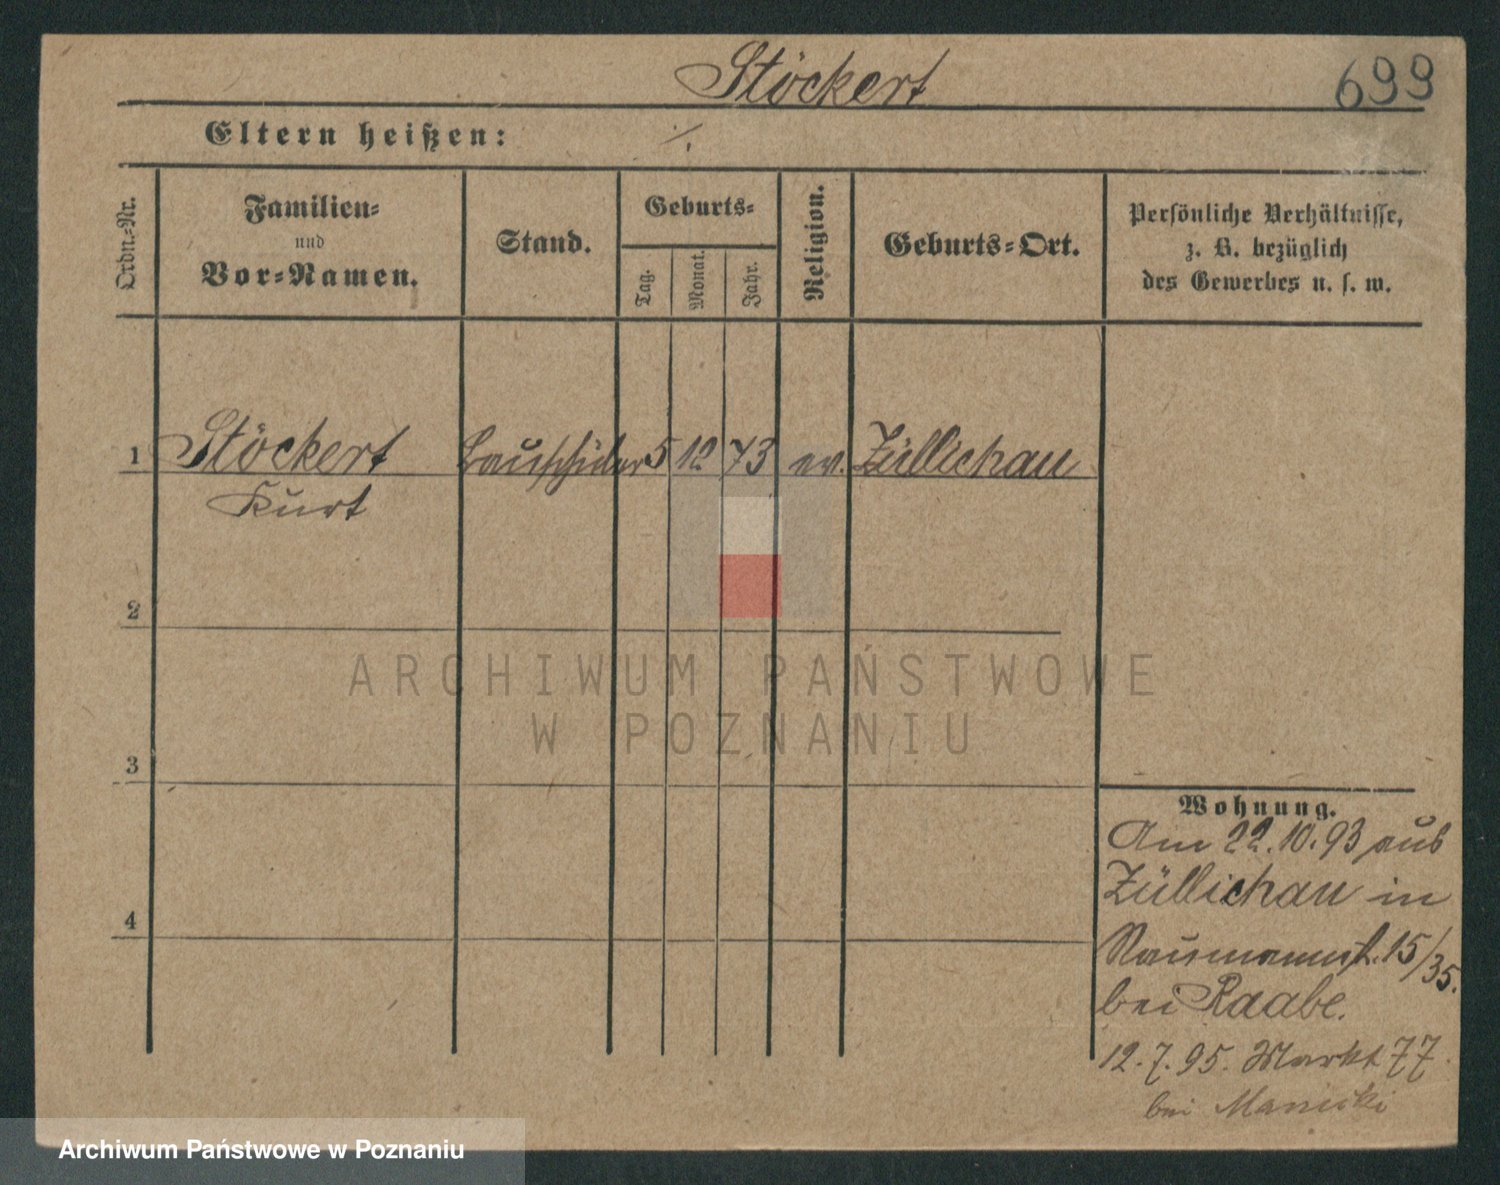 Stöckert
699
Eltern heißen: ./.
Ordn.-Nr.
Familien-
und
Vor-Namen.
Stand.
Geburts-
Tag.
Monat.
Jahr.
Religion.
Geburts-Ort.
Persönliche Verhältnisse,
z. B. bezüglich
des Gewerbes u. s. w.
1 Stöckert 5 12 73 ev. Züllichau
Kurt
2
3
4
Wohnung.
Am 22.10.93 aus
Züllichau in
Naumannst. 15/35.
bei Raabe.
12.7.95. Markt 77
bei
ARCHIWUM PAŃSTWOWE
W POZNANIU
Archiwum Państwowe w Poznaniu